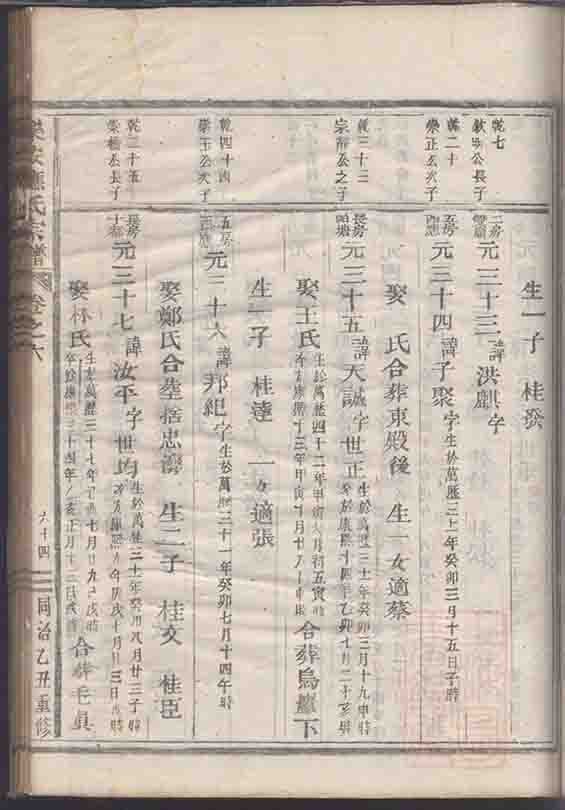 生一子 桂發
乾七
公長子
二房
元三十三 諱洪麒 字
乾二十
崇正公次子
元三十四 諱子聚 字 生於萬曆三十一年癸卯三月十五日子時
娶 氏合葬東殿後 生一女適蔡
乾三十三
公之子
長房
元三十五 諱天誠 字世正 生於萬曆三十一年癸卯三月十九申時
卒於康熙十四年乙卯七月二十亥時
娶王氏 生於萬曆四十二年甲寅八月初五寅時
合葬烏巖下
生一子 桂達 一女適張
乾四十四
崇玉公次子
五房
元三十六 諱邦紀 字 生於萬曆三十一年癸卯七月十四午時
娶鄭氏合葬 生二子 桂文 桂臣
乾二十五
崇 公長子
長房
元三十七 諱汝平 字世均
娶林氏 生於萬曆三十七年己酉七月廿九戌時
合葬
氏宗譜
卷之六
六十四
同治乙丑重修